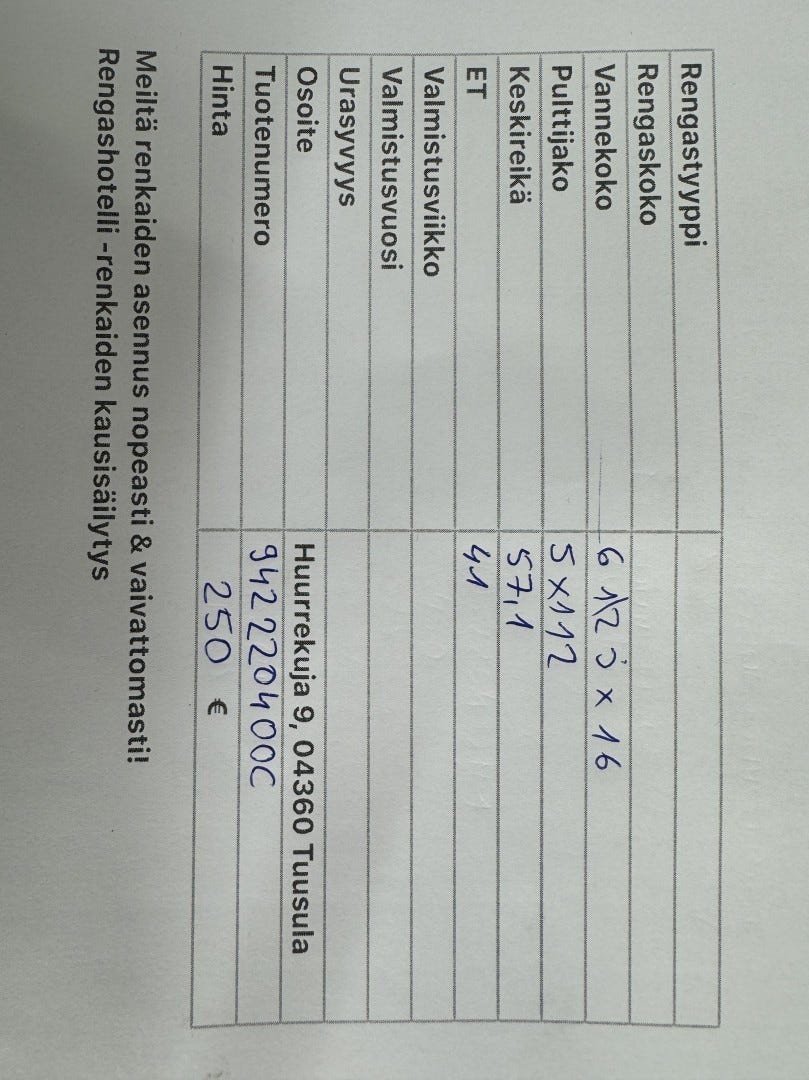 Rengastyyppi
Rengaskoko
Vannekoko 6 1/2 J x 16
Pulttijako 5x112
Keskireikä 57,1
ET 41
Valmistusviikko
Valmistusvuosi
Urasyvyys
Osoite Huurrekuja 9, 04360 Tuusula
Tuotenumero 942220400C
Hinta 250 €
Meiltä renkaiden asennus nopeasti & vaivattomasti!
Rengashotelli -renkaiden kausisäilytys